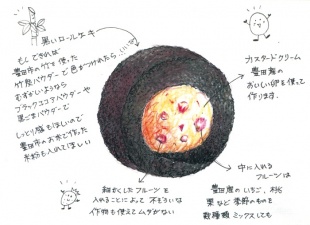 黒いロールケーキ
もしできれば
豊田市の竹を使った
竹炭パウダーで色がつけれたら…(いいな)
むずかしいようなら
ブラックココアパウダーや
黒ごまパウダーで
しっとり感もほしいので
豊田市のお米で作った
米粉も入れてほしい
カスタードクリーム
豊田産の
おいしい卵を使って
作ります。
細かくしたフルーツを
入れることによって不ぞろいな
作物も使えてムダがない
中に入れる
フルーツは
豊田産のいちご、桃
栗など季節のものを
数種類ミックスしても